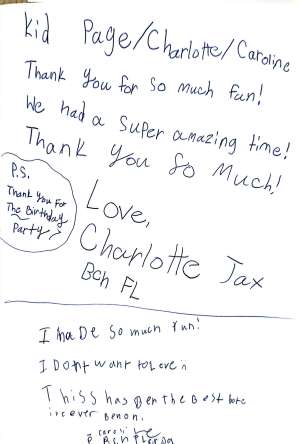 Kid Page/Charlotte/Caroline
Thank you for so much fun!
We had a super amazing time!
Thank you so much!
P.S.
Thank you For
The Birthday
Party
Love,
Charlotte Jax
Bch FL
I haDe so much fun!
I DOnt want to
Thiss has ben the Best
ever Benon.
caroline